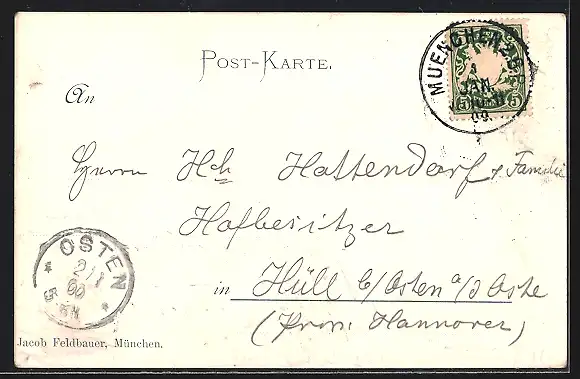 POST-KARTE.
MUENCHEN
JAN.
5 5
An
Herrn Hch Hattendorf u. Familie
Hofbesitzer
OSTEN
2/1
00
in Hüll b/Osten a/d Oste
(Prov. Hannover)
Jacob Feldbauer, München.